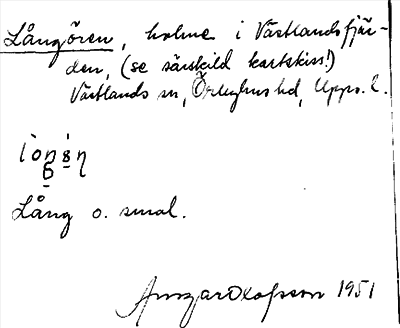 Långören, holme i Västlandsfjär-
den, (se särskild kartskiss!)
Västlands sn, Örbyhus hd, Upps. l.
Lång o. smal.
Ansgar Olofsson 1951